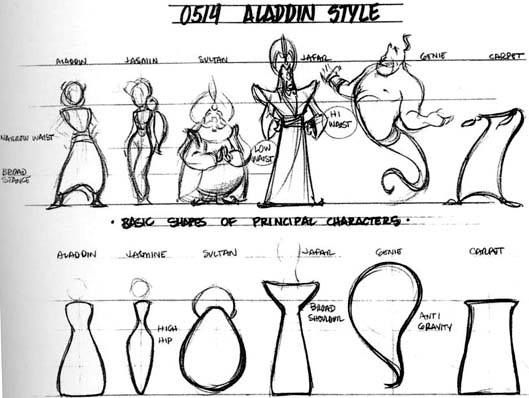 0514 ALADDIN STYLE
ALADDIN JASMIN SULTAN JAFAR GENIE CARPET
NARROW WAIST
HI WAIST
LOW WAIST
BROAD STANCE
• BASIC SHAPES OF PRINCIPAL CHARACTERS •
ALADDIN JASMINE SULTAN JAFAR GENIE CARPET
HIGH HIP
BROAD SHOULDER
ANTI GRAVITY